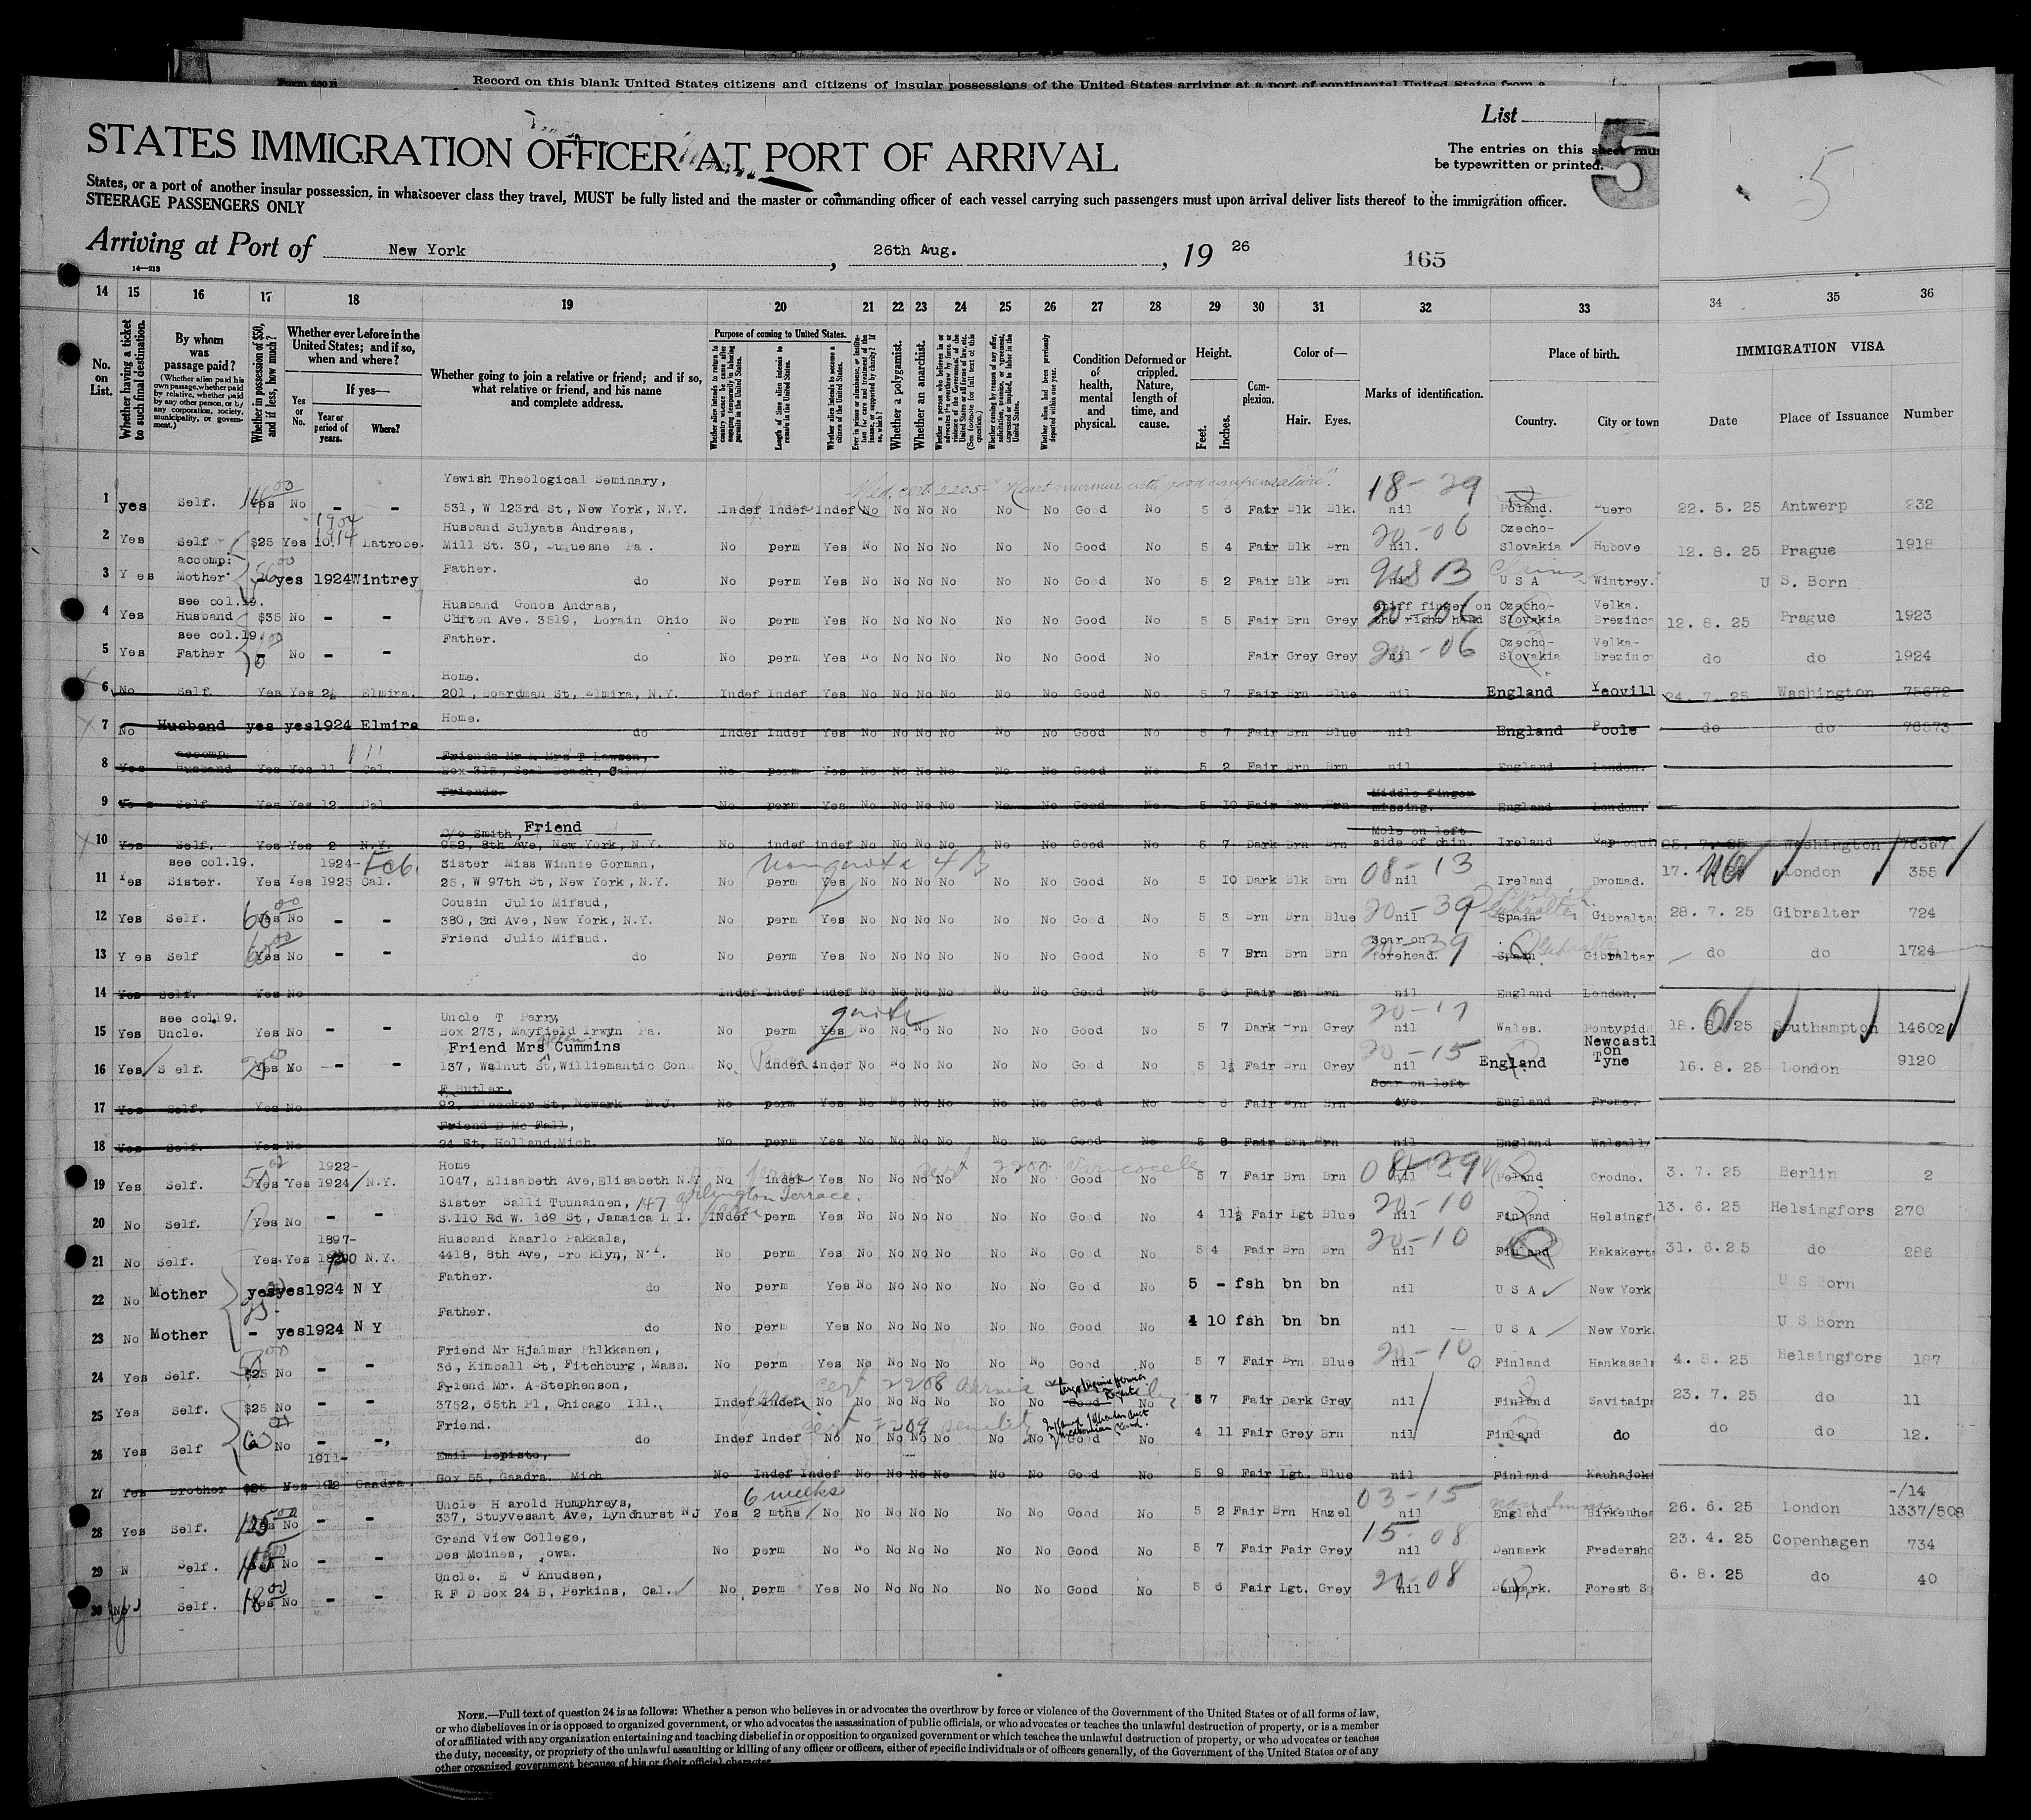 Form 630 B
Record on this blank United States citizens and citizens of insular possessions of the United States arriving at a port of continental United States from a
List
STATES IMMIGRATION OFFICER AT PORT OF ARRIVAL
The entries on this sheet must
be typewritten or printed.
5
5
States, or a port of another insular possession, in whatsoever class they travel, MUST be fully listed and the master or commanding officer of each vessel carrying such passengers must upon arrival deliver lists thereof to the immigration officer.
STEERAGE PASSENGERS ONLY
Arriving at Port of New York, 26th Aug., 1926 165
14—213
14 15 16 17 18 19 20 21 22 23 24 25 26 27 28 29 30 31 32 33 34 35 36
No. on List.
Whether having a ticket to such final destination.
By whom was passage paid?
(Whether alien paid his own passage, whether paid by relative, whether paid by any other person, or by any corporation, society, municipality, or government.)
Whether in possession of $50, and if less, how much?
Whether ever before in the United States; and if so, when and where?
Yes or No.
If yes—
Year or period of years.
Where?
Whether going to join a relative or friend; and if so, what relative or friend, and his name and complete address.
Purpose of coming to United States.
Length of time alien intends to remain in the United States.
Whether alien intends to become a citizen of the United States.
Whether a polygamist.
Whether an anarchist.
Whether alien had been previously deported within one year.
Condition of health, mental and physical.
Deformed or crippled. Nature, length of time, and cause.
Height.
Feet. Inches.
Complexion.
Color of—
Hair. Eyes.
Marks of identification.
Place of birth.
Country. City or town
IMMIGRATION VISA
Date Place of Issuance Number
Yewish Theological Seminary, Med. cert. 2205- "Heart murmur with good compensation". 18-29
1 yes Self. Yes No - - 531, W 123rd St, New York, N.Y. Indef Indef Indef No No No No No No Good No 5 6 Fair Blk Blk. nil Poland. 22. 5. 25 Antwerp 232
1904 Husband Sulyats Andreas, 20-06 Czecho-
2 Yes Self $25 Yes 1914 Latrobe. Mill St. 30, Duquesne Pa. No perm Yes No No No No No No Good No 5 4 Fair Blk Brn nil. Slovakia Hubove 12. 8. 25 Prague 1918
accomp: Father.
3 Yes Mother yes 1924 Wintrey do No perm Yes No No No No No No Good No 5 2 Fair Blk Brn nil USB USA Wintrey. U S. Born
see col.19. Husband Gonos Andras, Stiff finger on Czecho- Velka.
4 Yes Husband $35 No - - Clifton Ave. 3519, Lorain Ohio No perm Yes No No No No No No Good No 5 5 Fair Brn Grey the right hand 20-06 Slovakia Brezinca 12. 8. 25 Prague 1923
see col.19. Father. Czecho- Velka-
5 Yes Father - No - - do No perm Yes No No No No No No Good No Fair Grey Grey nil 20-06 Slovakia do do 1924
Home.
6 No Self. Yes Yes Elmira. 201, Boardman St, Elmira, N.Y. Indef Indef Yes No No No No No No Good No 5 7 Fair Brn Blue nil England Yeovill 24. 7. 25 Washington 75672
Home.
7 No Husband yes yes 1924 Elmira do Indef Indef Yes No No No No No No Good No 5 7 Fair Brn Blue nil England Poole do do 76573
accomp. Friends Mr & Mrs T Lawson,
8 Yes Husband Yes Yes 11 Cal. Box 313, Seal Beach, Cal. No perm Yes No No No No No No Good No 5 2 Fair Brn Brn nil England London.
Friends. Middle finger
9 Yes Self Yes Yes 12 Cal. do No perm Yes No No No No No No Good No 5 10 Fair Brn Brn missing. England London.
C/o Smith, Friend Mole on left
10 Yes Self. Yes Yes 2 N.Y. 952, 8th Ave, New York, N.Y. No indef indef No No No No No No Good No 5 7 Dark Brn Brn side of chin. Ireland 25. 7. 25 Washington 76367
see col.19. 1924- Sister Miss Winnie Gorman, Non quota 4 B 08-13
11 Yes Sister. Yes Yes 1925 Cal. 25, W 97th St, New York, N.Y. No perm Yes No No No No No No Good No 5 10 Dark Blk Brn nil Ireland Dromad. London 355
Cousin Julio Mifsud, 20-39
12 Yes Self. 60 Yes No - - 380, 3rd Ave, New York, N.Y. No perm Yes No No No No No No Good No 5 3 Brn Brn Blue nil Spain Gibraltar 28. 7. 25 Gibralter 724
Friend Julio Mifsud. Scar on
13 Yes Self 60 Yes No - - do No perm Yes No No No No No No Good No 5 7 Brn Brn Brn forehead. Spain Gibraltar do do 1724
14 Yes Self. Yes No Indef Indef Indef No No No No No No Good No 5 6 Fair Brn Brn nil England London.
see col.19. Uncle T Parry, quota 20-17
15 Yes Uncle. Yes No - - Box 273, Mayfield Irwyn Pa. No perm Yes No No No No No No Good No 5 7 Dark Brn Grey nil Wales. Pontypidd 18. 8. 25 Southampton 14602
Friend Mrs Helen Cummins 20-15 Newcastl on
16 Yes Self. Yes No - - 137, Walnut St, Williemantic Conn No indef indef No No No No No No Good No 5 1½ Fair Brn Grey nil England Tyne 16. 8. 25 London 9120
F Butler. Scar on left
17 Yes Self. Yes No 92, Bleecker St, Newark N.J. No perm Yes No No No No No No Good No 5 6 Fair Brn Brn eye. England Frome.
Friend D Mc Fall,
18 Yes Self. Yes No 24 St, Holland, Mich. No perm Yes No No No No No No Good No 5 8 Fair Brn Brn nil England Walsall
1922- Home cert 2200 Varicocele 08-29
19 Yes Self. 50 Yes Yes 1924 N.Y. 1047, Elisabeth Ave, Elisabeth N.Y No indef Yes No No No No No No Good No 5 7 Fair Brn Brn nil Poland Grodno. 3. 7. 25 Berlin 2
Sister Salli Tuunainen, 147 Arlington Terrace. 20-10
20 No Self. Yes No - - S.110 Rd W. 169 St, Jamaica L I. INdef perm Yes No No No No No No Good No 4 11½ Fair Lgt Blue nil Finland Helsingf 13. 6. 25 Helsingfors 270
1897- Husband Kaarlo Pakkala, 20-10
21 No Self. Yes Yes N.Y. 4418, 8th Ave, Brooklyn, N.Y. No perm Yes No No No No No No Good No 5 4 Fair Brn Brn nil Finland Kakskerta 31. 6. 25 do 286
Father.
22 No Mother yes yes 1924 N Y do No perm Yes No No No No No No Good No 5 - fsh bn bn nil U S A New York U S Born
Father.
23 No Mother - yes 1924 N Y do No perm Yes No No No No No No Good No 4 10 fsh bn bn nil U S A New York. U S Born
Friend Mr Hjalmar Phlkkanen, 20-10
24 Yes Self. $25 No - - 36, Kimball St, Fitchburg, Mass. No perm Yes No No No No No No Good No 5 7 Fair Brn Blue nil Finland Hankasalm 4. 8. 25 Helsingfors 187
Friend Mr. A Stephenson, cert 2208 Hernia
25 Yes Self. $25 No - - 3752, 65th Pl, Chicago Ill. Indef Indef No No No No No No No Good No 5 7 Fair Dark Grey nil Finland Savitaipa 23. 7. 25 do 11
Friend. cert 2209 senility
26 Yes Self No - - do Indef Indef No No No No No No No Good No 4 11 Fair Grey Brn nil Finland do do do 12.
1911- Emil Lepisto,
27 Yes Brother $25 Gaadra. Box 55, Gaadra. Mich No Indef Indef No No No No No No Good No 5 9 Fair Lgt. Blue nil Finland Kauhajoki
Uncle Harold Humphreys, 6 weeks 03-15 non Immi -/14
28 Yes Self. Yes No - - 337, Stuyvesant Ave, Lyndhurst NJ Yes 2 mths No No No No No No No Good No 5 2 Fair Brn Hazel nil England Birkenhea 26. 6. 25 London 1337/508
Grand View College, 15-08
29 N Self. Yes No - - Des Moines, Iowa. No perm No No No No No No No Good No 5 7 Fair Fair Grey nil Denmark Fredersho 23. 4. 25 Copenhagen 734
Uncle. E J Knudsen, 20-08
30 No Self. 18 Yes No - - R F D Box 24 B, Perkins, Cal. No perm Yes No No No No No No Good No 5 6 Fair Lgt. Grey nil Denmark. Forest 6. 8. 25 do 40
NOTE.—Full text of question 24 is as follows: Whether a person who believes in or advocates the overthrow by force or violence of the Government of the United States or of all forms of law,
or who disbelieves in or is opposed to organized government, or who advocates the assassination of public officials, or who advocates or teaches the unlawful destruction of property, or is a member
of or affiliated with any organization entertaining and teaching disbelief in or opposition to organized government or which teaches the unlawful destruction of property, or who advocates or teaches
the duty, necessity, or propriety of the unlawful assaulting or killing of any officer or officers, either of specific individuals or of officers generally, of the Government of the United States or of any
other organized government because of his or their official character.